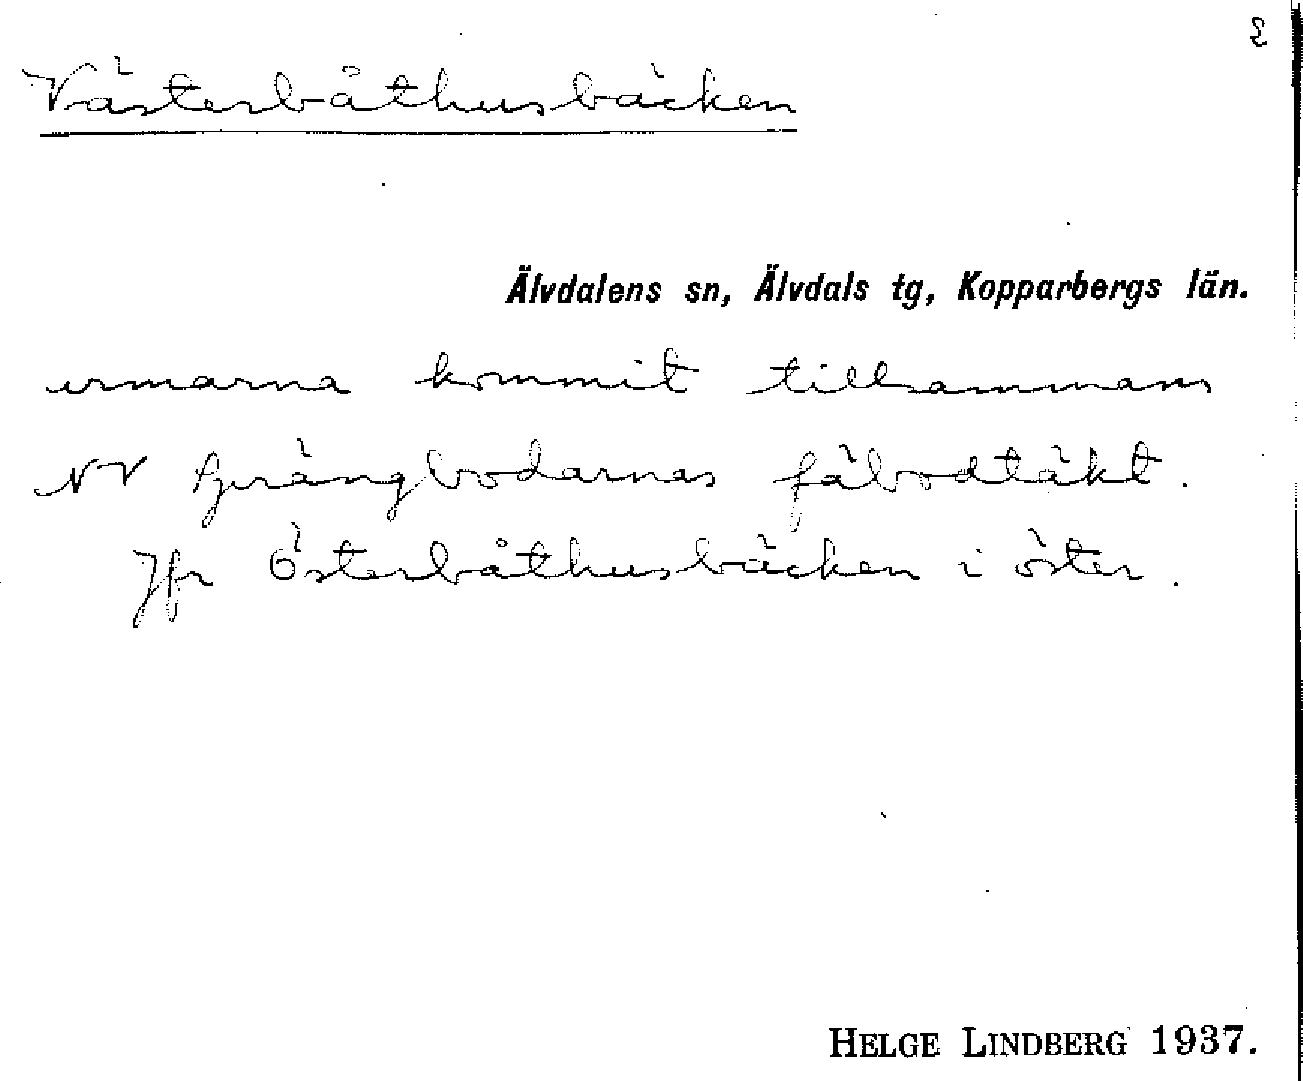 2
Västerbåthusbäcken
Älvdalens sn, Älvdals tg, Kopparbergs län.
urmarna kommit tillsammans
NV Sprängbodarnas fäbodtäkt.
Jfr Österbåthusbäcken i öster.
HELGE LINDBERG 1937.